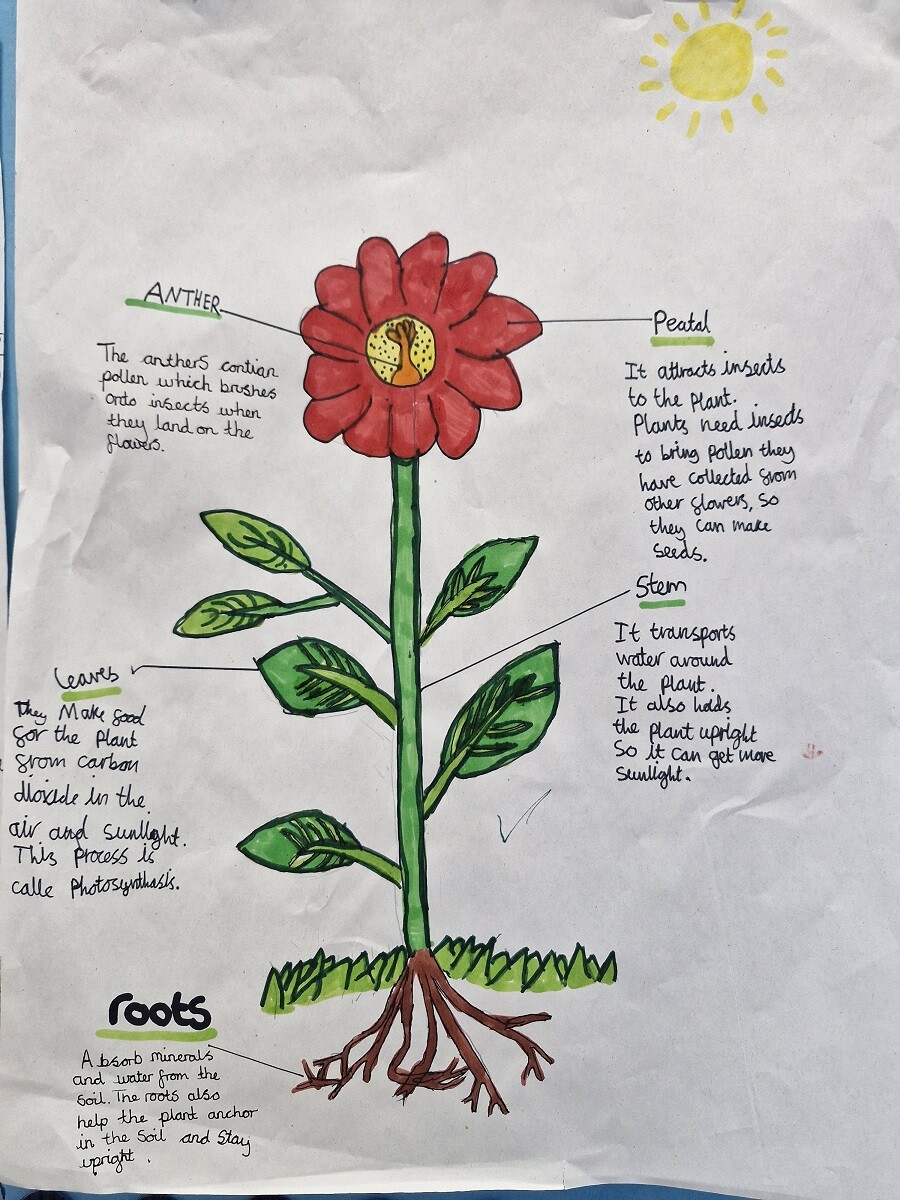 ANTHER
The anthers contian
pollen which brushes
onto insects when
they land on the
flowers.
Peatal
It attracts insects
to the plant.
Plants need insects
to bring pollen they
have collected from
other flowers, so
they can make
seeds.
Stem
It transports
water around
the plant.
It also holds
the plant upright
So it can get more
sunlight.
leaves
They Make food
for the plant
from carbon
dioxide in the
air and sunlight.
This process is
calle photosynthasis.
roots
Absorb minerals
and water from the
soil. The roots also
help the plant anchor
in the soil and stay
upright.